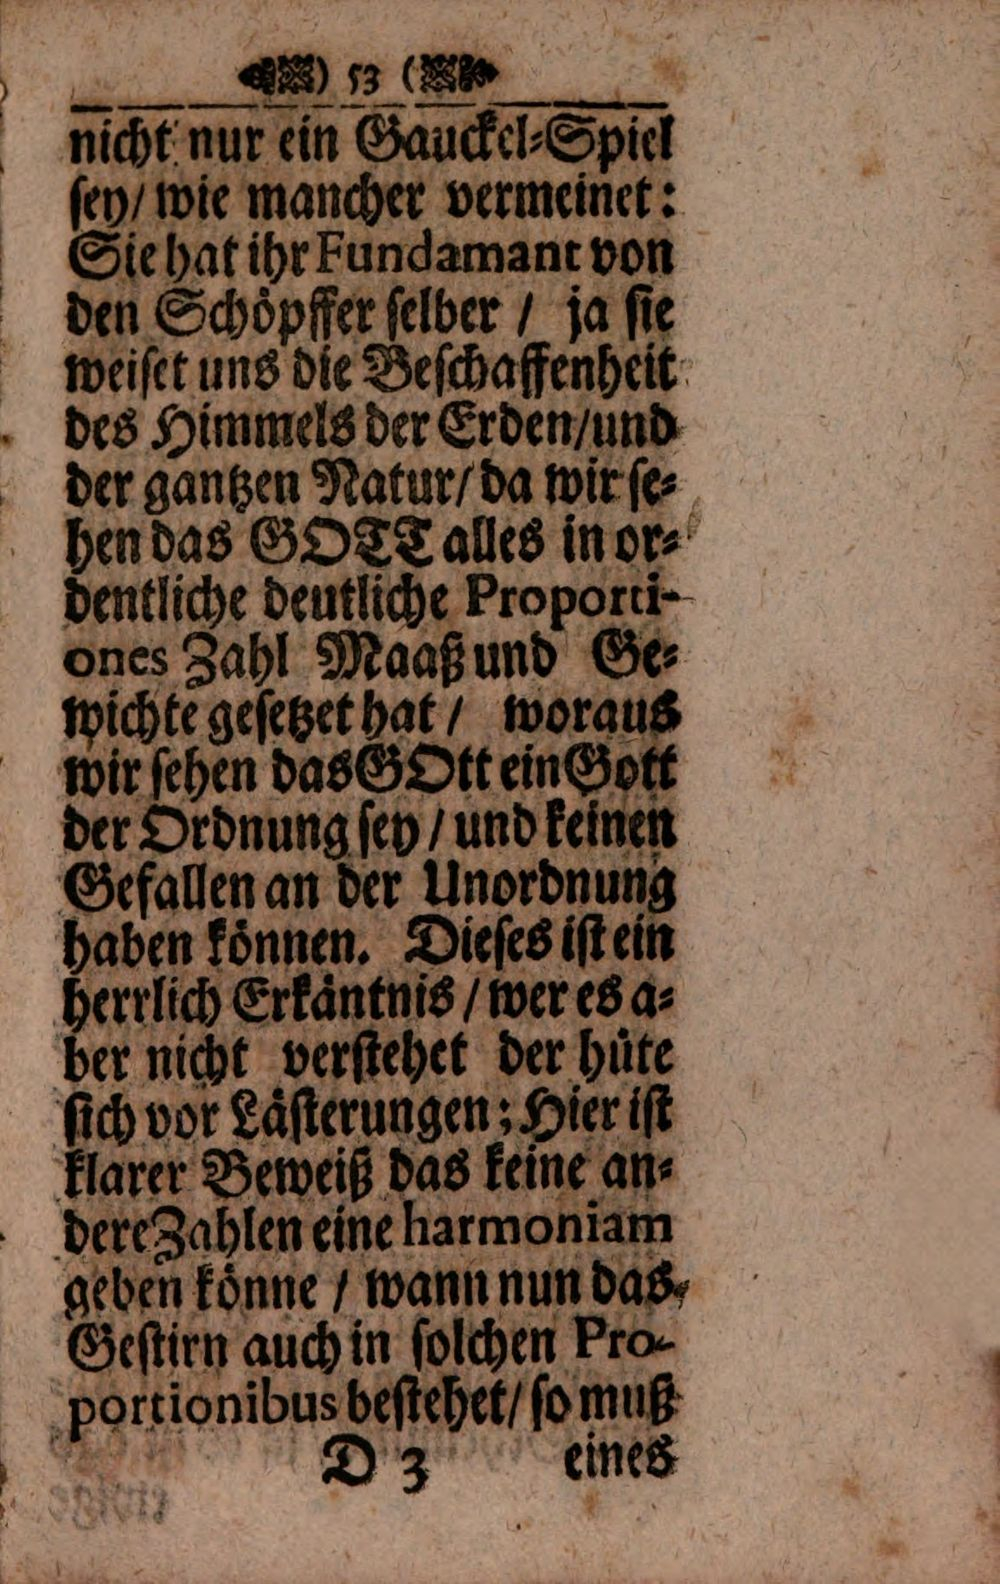 ) 53 (
nicht nur ein Gauckel-Spiel
sey/ wie mancher vermeinet:
Sie hat ihr Fundamant von
den Schöpffer selber / ja sie
weiset uns die Beschaffenheit
des Himmels der Erden/und
der gantzen Natur/ da wir se-
hen das GOTT alles in or-
dentliche deutliche Proporti-
ones Zahl Maaß und Ge-
wichte gesetzet hat / woraus
wir sehen das GOtt ein Gott
der Ordnung sey / und keinen
Gefallen an der Unordnung
haben können. Dieses ist ein
herrlich Erkäntnis / wer es a-
ber nicht verstehet der hüte
sich vor Lästerungen; Hier ist
klarer Beweiß das keine an-
dere Zahlen eine harmoniam
geben könne / wann nun das
Gestirn auch in solchen Pro-
portionibus bestehet/ so muß
D 3 eines